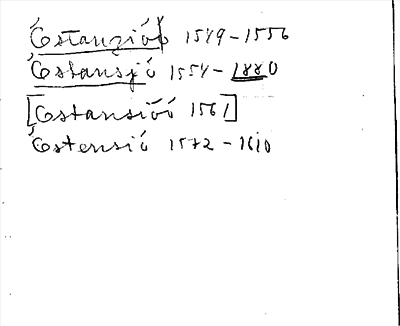 Óstanziób 1549-1556
Óstansjó 1554-1880
[Óstansióó 1561]
Óstensió 1572-1610